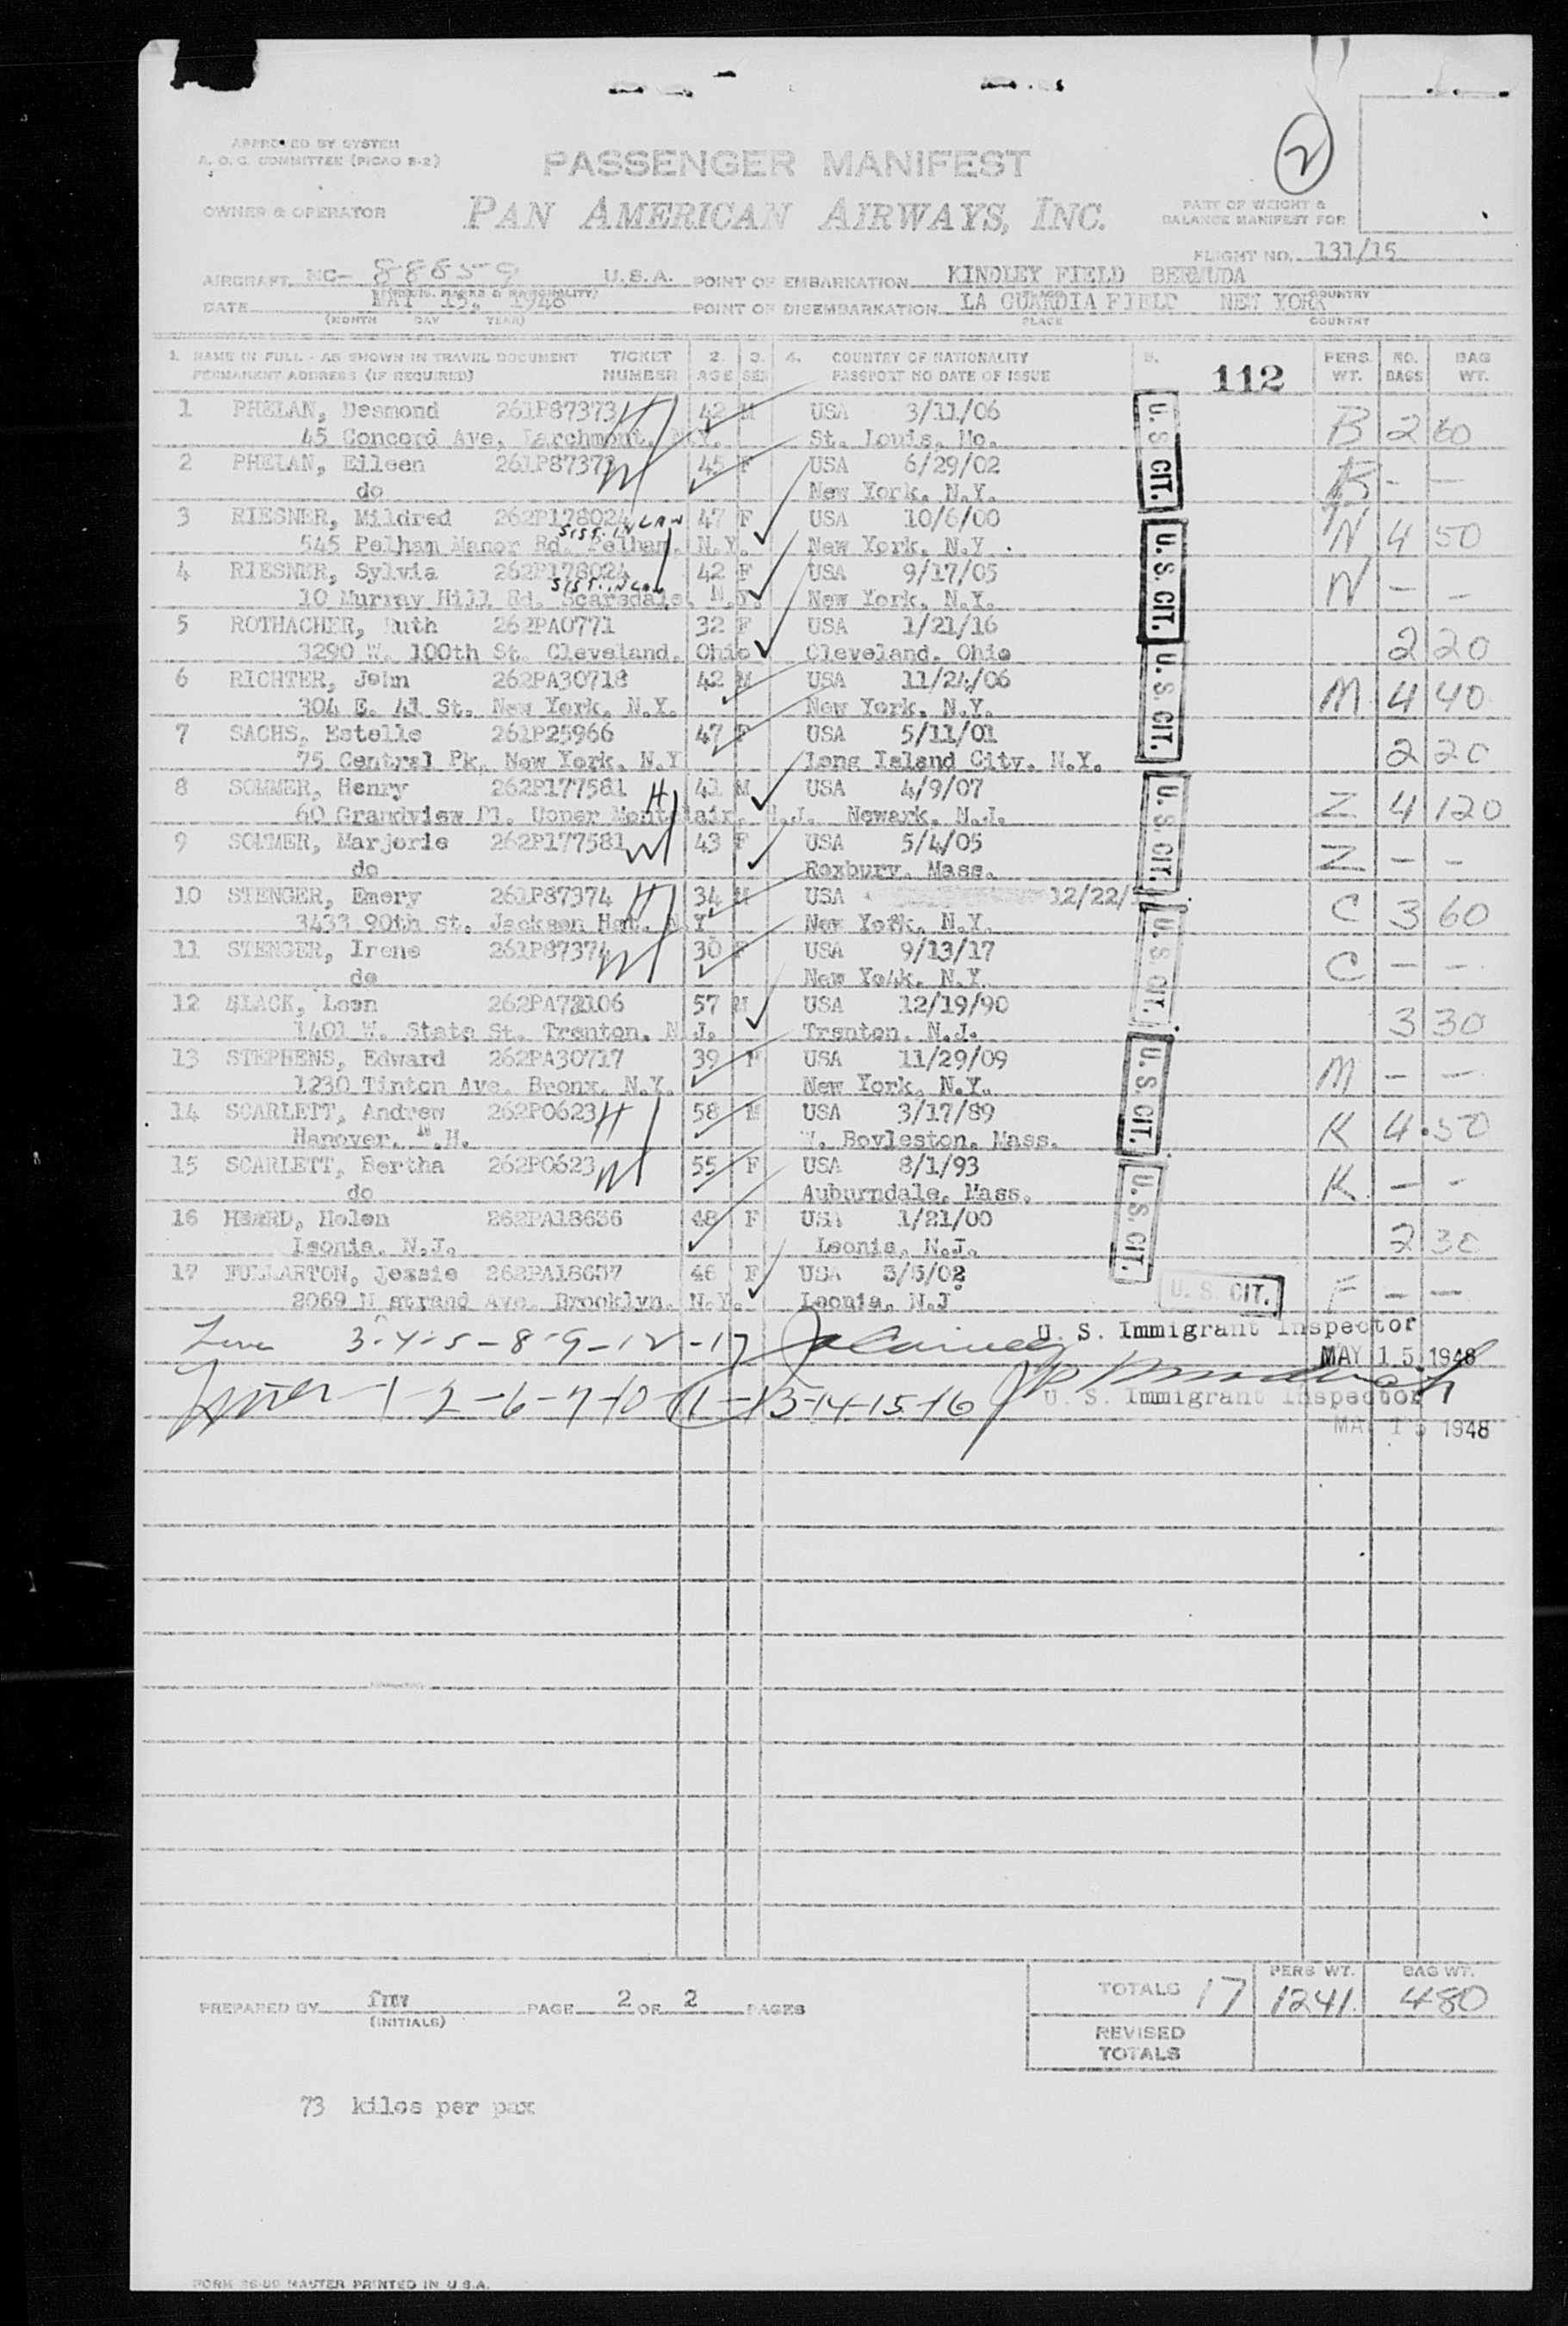 APPROVED BY SYSTEM
A. O. C. COMMITTEE (PICAO S-2)
PASSENGER MANIFEST
2
OWNER & OPERATOR
PAN AMERICAN AIRWAYS, INC.
PART OF WEIGHT &
BALANCE MANIFEST FOR
FLIGHT NO. 131/15
AIRCRAFT NC- 88859 U.S.A. POINT OF EMBARKATION KINDLEY FIELD BERMUDA
DATE MAY 15, 1948 POINT OF DISEMBARKATION LA GUARDIA FIELD NEW YORK
COUNTRY
(MONTH DAY YEAR) PLACE COUNTRY
1. NAME IN FULL - AS SHOWN IN TRAVEL DOCUMENT TICKET 2. 3. 4. COUNTRY OF NATIONALITY 5. PERS. NO. BAG
PERMANENT ADDRESS (IF REQUIRED) NUMBER AGE SEX PASSPORT NO DATE OF ISSUE 112 WT. BAGS WT.
1 PHELAN, Desmond 261P87373 H 42 M USA 3/11/06 U. S. CIT. B 2 60
45 Concord Ave, Larchmont, N.Y. St. Louis, Mo.
2 PHELAN, Eileen 261P87373 W 45 F USA 6/29/02 B - -
do New York, N.Y.
3 RIESNER, Mildred 262P178024 47 F USA 10/6/00 U. S. CIT. N 4 50
SIST. IN LAW
545 Pelham Manor Rd. Pelham, N.Y. New York, N.Y.
4 RIESNER, Sylvia 262P178024 42 F USA 9/17/05 N - -
SIST. IN LAW
10 Murray Hill Rd. Scarsdale, N.Y. New York, N.Y.
5 ROTHACHER, Ruth 262PA0771 32 F USA 1/21/16 U. S. CIT. 2 20
3290 W. 100th St. Cleveland, Ohio Cleveland, Ohio
6 RICHTER, John 262PA30718 42 M USA 11/24/06 M 4 40
304 E. 41 St. New York, N.Y. New York, N.Y.
7 SACHS, Estelle 261P25966 47 F USA 5/11/01 2 20
75 Central Pk, New York, N.Y Long Island City, N.Y.
8 SOMMER, Henry 262P177581 H 41 M USA 4/9/07 U. S. CIT. Z 4 120
60 Grandview Pl. Upper Montclair, N.J. Newark, N.J.
9 SOMMER, Marjorie 262P177581 W 43 F USA 5/4/05 Z - -
do Roxbury, Mass.
10 STENGER, Emery 261P87374 H 34 M USA 12/22/ U. S. CIT. C 3 60
3433 90th St. Jackson Hgt. N.Y New York, N.Y.
11 STENGER, Irene 261P87374 W 30 F USA 9/13/17 C - -
do New York, N.Y
12 LACK, Leon 262PA73106 57 M USA 12/19/90 3 30
1401 W. State St. Trenton, N.J. Trenton, N.J.
13 STEPHENS, Edward 262PA30717 39 USA 11/29/09 U. S. CIT. M - -
1230 Tinton Ave. Bronx, N.Y. New York, N.Y.
14 SCARLETT, Andrew 262P0623 H 58 M USA 3/17/89 K 4 50
Hanover, N.H. W. Boyleston, Mass.
15 SCARLETT, Bertha 262P0623 W 55 F USA 8/1/93 U. S. CIT. K - -
do Auburndale, Mass.
16 HEARD, Helen 262PA18656 48 F USA 1/21/00 2 30
Leonia, N.J. Leonia, N.J.
17 FULLARTON, Jessie 262PA18657 46 F USA 3/5/02 U. S. CIT. F - -
2069 N strand Ave. Brooklyn, N.Y. Leonia, N.J
3-4-5-8-9-12-17 U. S. Immigrant Inspector
MAY 15 1948
1-2-6-7-10-11-13-14-15-16 U. S. Immigrant Inspector
MAY 15 1948
PERS WT. BAG WT.
TOTALS 17 1241 480
PREPARED BY fmw PAGE 2 OF 2 PAGES
(INITIALS)
REVISED
TOTALS
73 kilos per pax
MASTER PRINTED IN U.S.A.